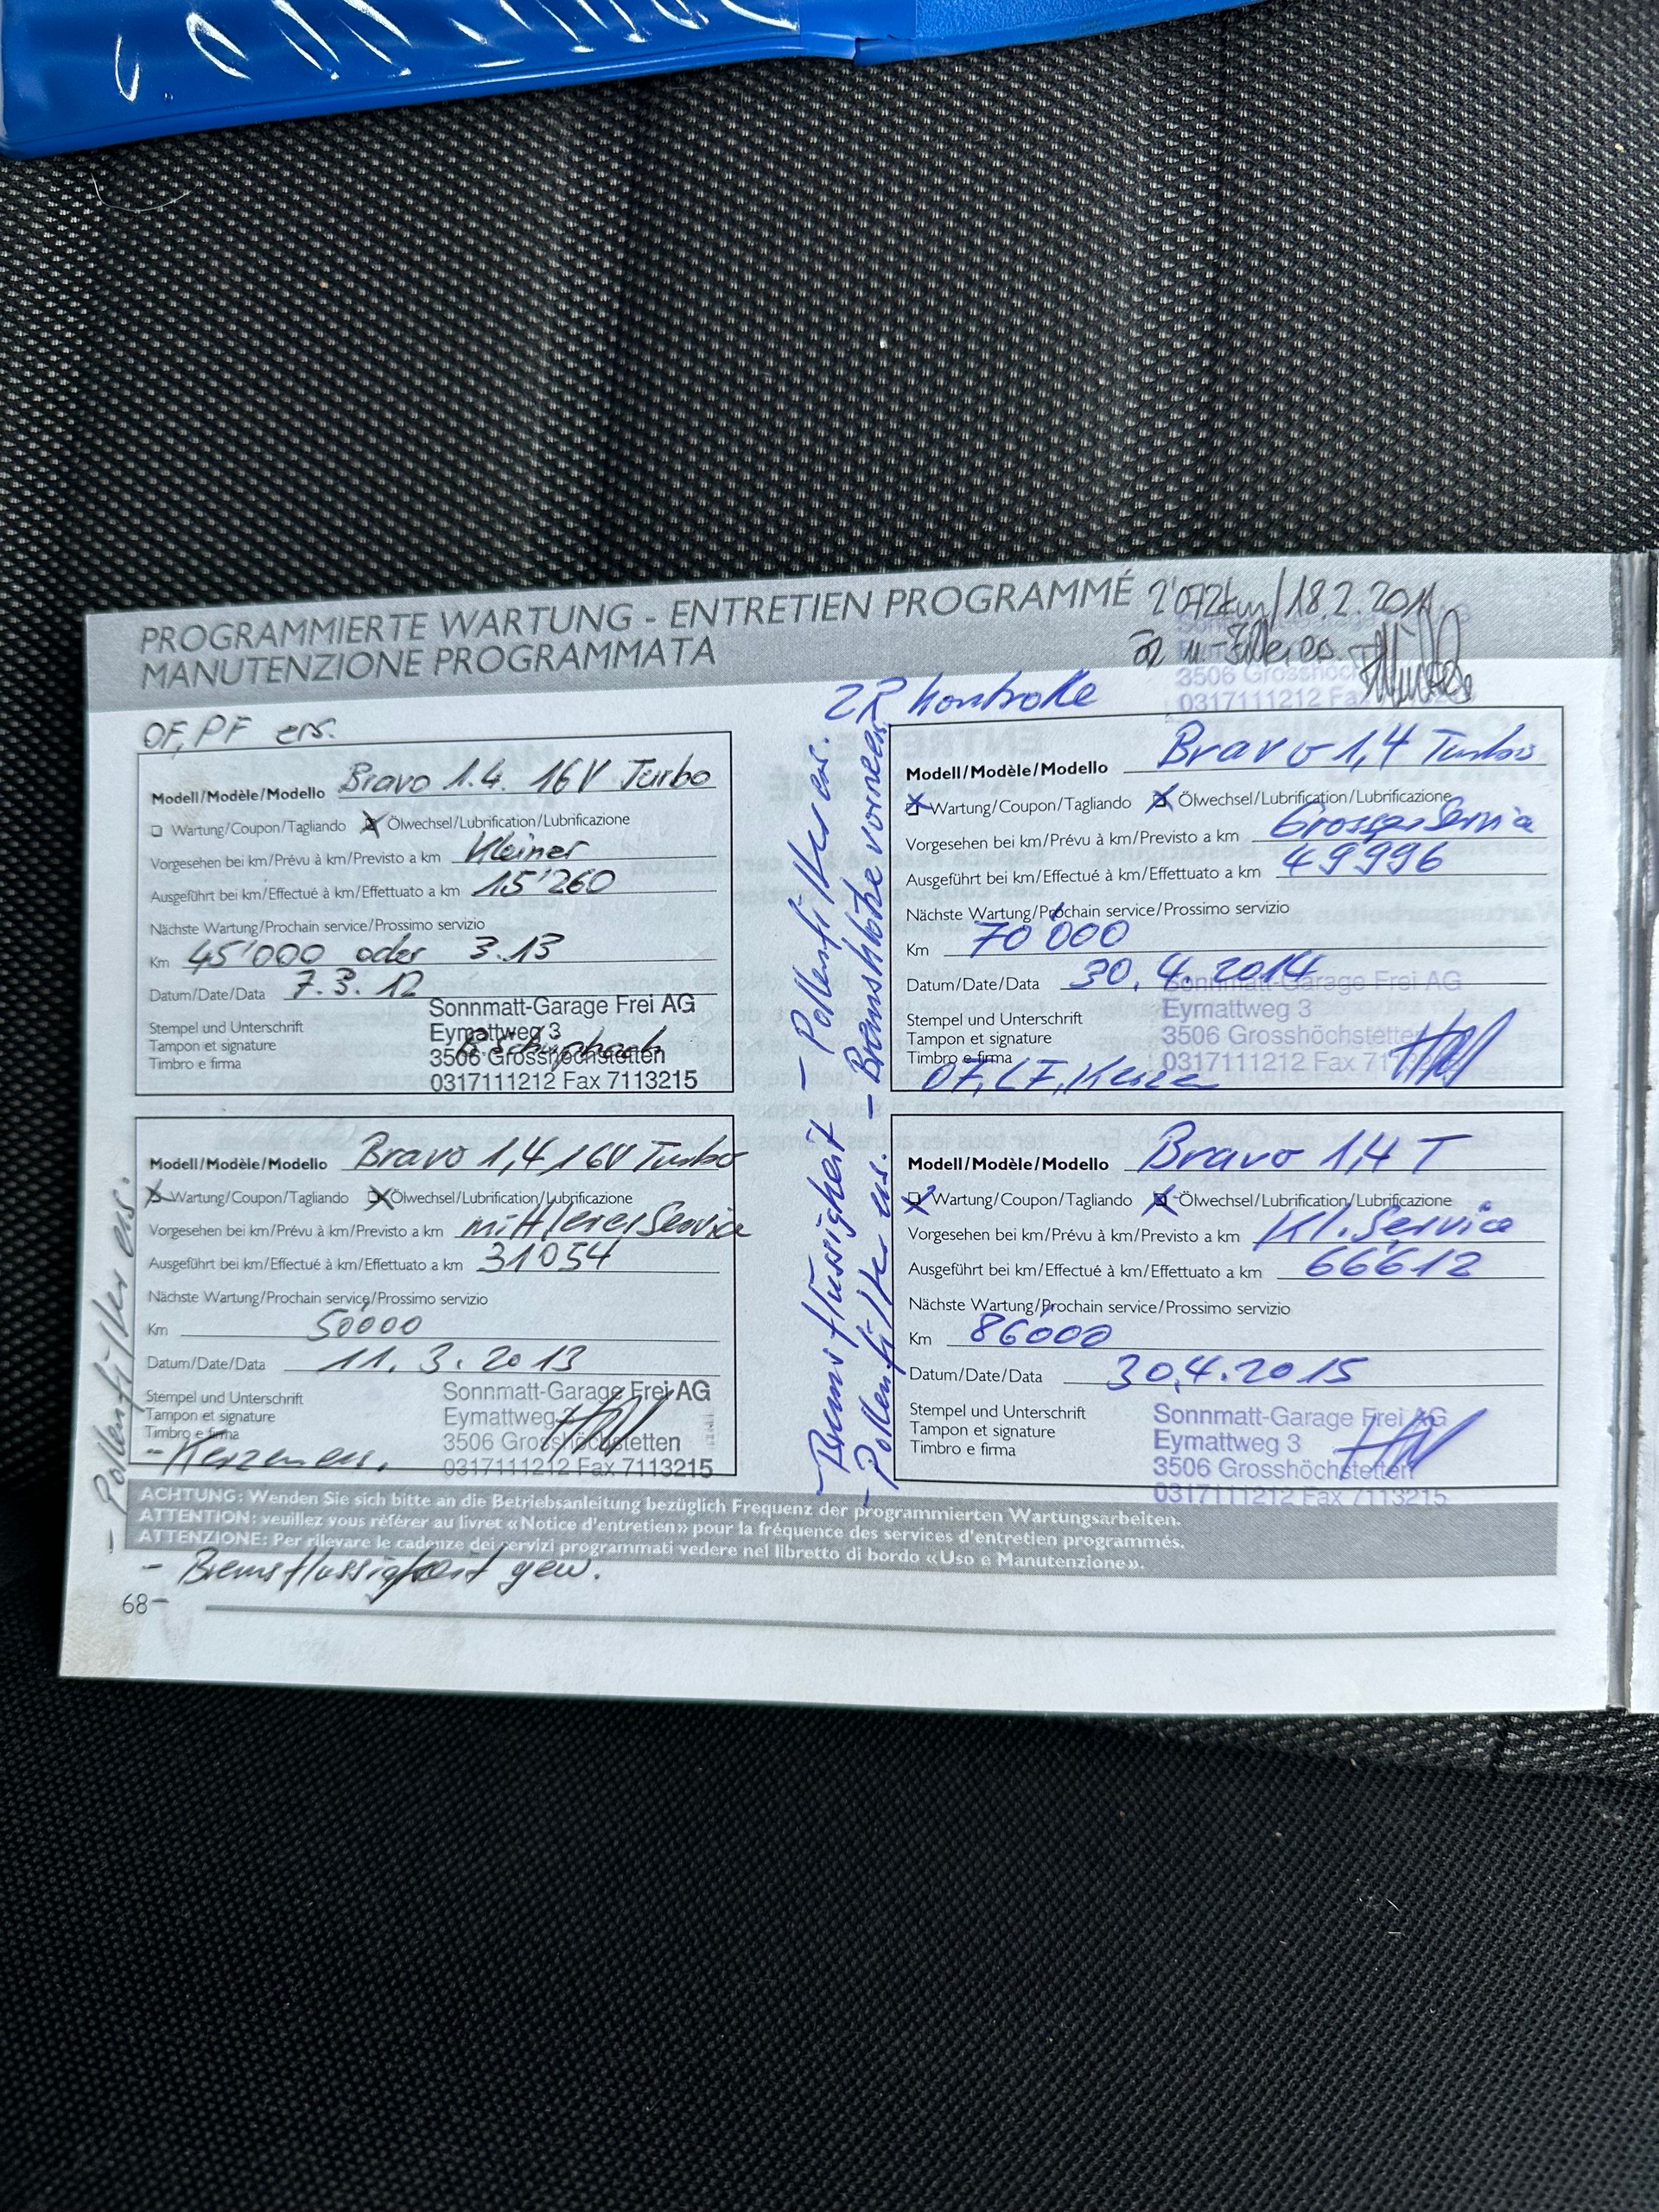 PROGRAMMIERTE WARTUNG - ENTRETIEN PROGRAMMÉ
MANUTENZIONE PROGRAMMATA
2'072km/18.2.2011
Öl u. Filter es.
3506 Grosshöch
0317111212 Fax
OF, PF ers.
Modell/Modèle/Modello Bravo 1.4. 16V Turbo
Wartung/Coupon/Tagliando Ölwechsel/Lubrification/Lubrificazione
Vorgesehen bei km/Prévu à km/Previsto a km Kleiner
Ausgeführt bei km/Effectué à km/Effettuato a km 15'260
Nächste Wartung/Prochain service/Prossimo servizio
Km 45'000 oder 3.13
Datum/Date/Data 7.3.12
Stempel und Unterschrift
Tampon et signature
Timbro e firma
Sonnmatt-Garage Frei AG
Eymattweg 3
3506 Grosshöchstetten
0317111212 Fax 7113215
Modell/Modèle/Modello Bravo 1,4 16V Turbo
Wartung/Coupon/Tagliando Ölwechsel/Lubrification/Lubrificazione
Vorgesehen bei km/Prévu à km/Previsto a km mittlerer Service
Ausgeführt bei km/Effectué à km/Effettuato a km 31054
Nächste Wartung/Prochain service/Prossimo servizio
Km 50'000
Datum/Date/Data 11.3.2013
Stempel und Unterschrift
Tampon et signature
Timbro e firma
- Kerzen ers.
Sonnmatt-Garage Frei AG
Eymattweg 3
3506 Grosshöchstetten
0317111212 Fax 7113215
- Pollenfilter ers.
- Bremsflüssigkeit gew.
ZR Kontrolle
- Bremsflüssigkeit - Pollenfilter ers.
- Pollenfilter ers. - Bremsklötze vorne ers
Modell/Modèle/Modello Bravo 1,4 Turbo
Wartung/Coupon/Tagliando Ölwechsel/Lubrification/Lubrificazione
Vorgesehen bei km/Prévu à km/Previsto a km Grosser Service
Ausgeführt bei km/Effectué à km/Effettuato a km 49996
Nächste Wartung/Prochain service/Prossimo servizio
Km 70'000
Datum/Date/Data 30.4.2014
Stempel und Unterschrift
Tampon et signature
Timbro e firma
OF, LF, Kerzen
Sonnmatt-Garage Frei AG
Eymattweg 3
3506 Grosshöchstetten
0317111212 Fax 711
Modell/Modèle/Modello Bravo 1,4 T
Wartung/Coupon/Tagliando Ölwechsel/Lubrification/Lubrificazione
Vorgesehen bei km/Prévu à km/Previsto a km Kl. Service
Ausgeführt bei km/Effectué à km/Effettuato a km 66612
Nächste Wartung/Prochain service/Prossimo servizio
Km 86'000
Datum/Date/Data 30.4.2015
Stempel und Unterschrift
Tampon et signature
Timbro e firma
Sonnmatt-Garage Frei AG
Eymattweg 3
3506 Grosshöchstetten
0317111212 Fax 7113215
ACHTUNG: Wenden Sie sich bitte an die Betriebsanleitung bezüglich Frequenz der programmierten Wartungsarbeiten.
ATTENTION: veuillez vous référer au livret «Notice d'entretien» pour la fréquence des services d'entretien programmés.
ATTENZIONE: Per rilevare le cadenze dei servizi programmati vedere nel libretto di bordo «Uso e Manutenzione».
68